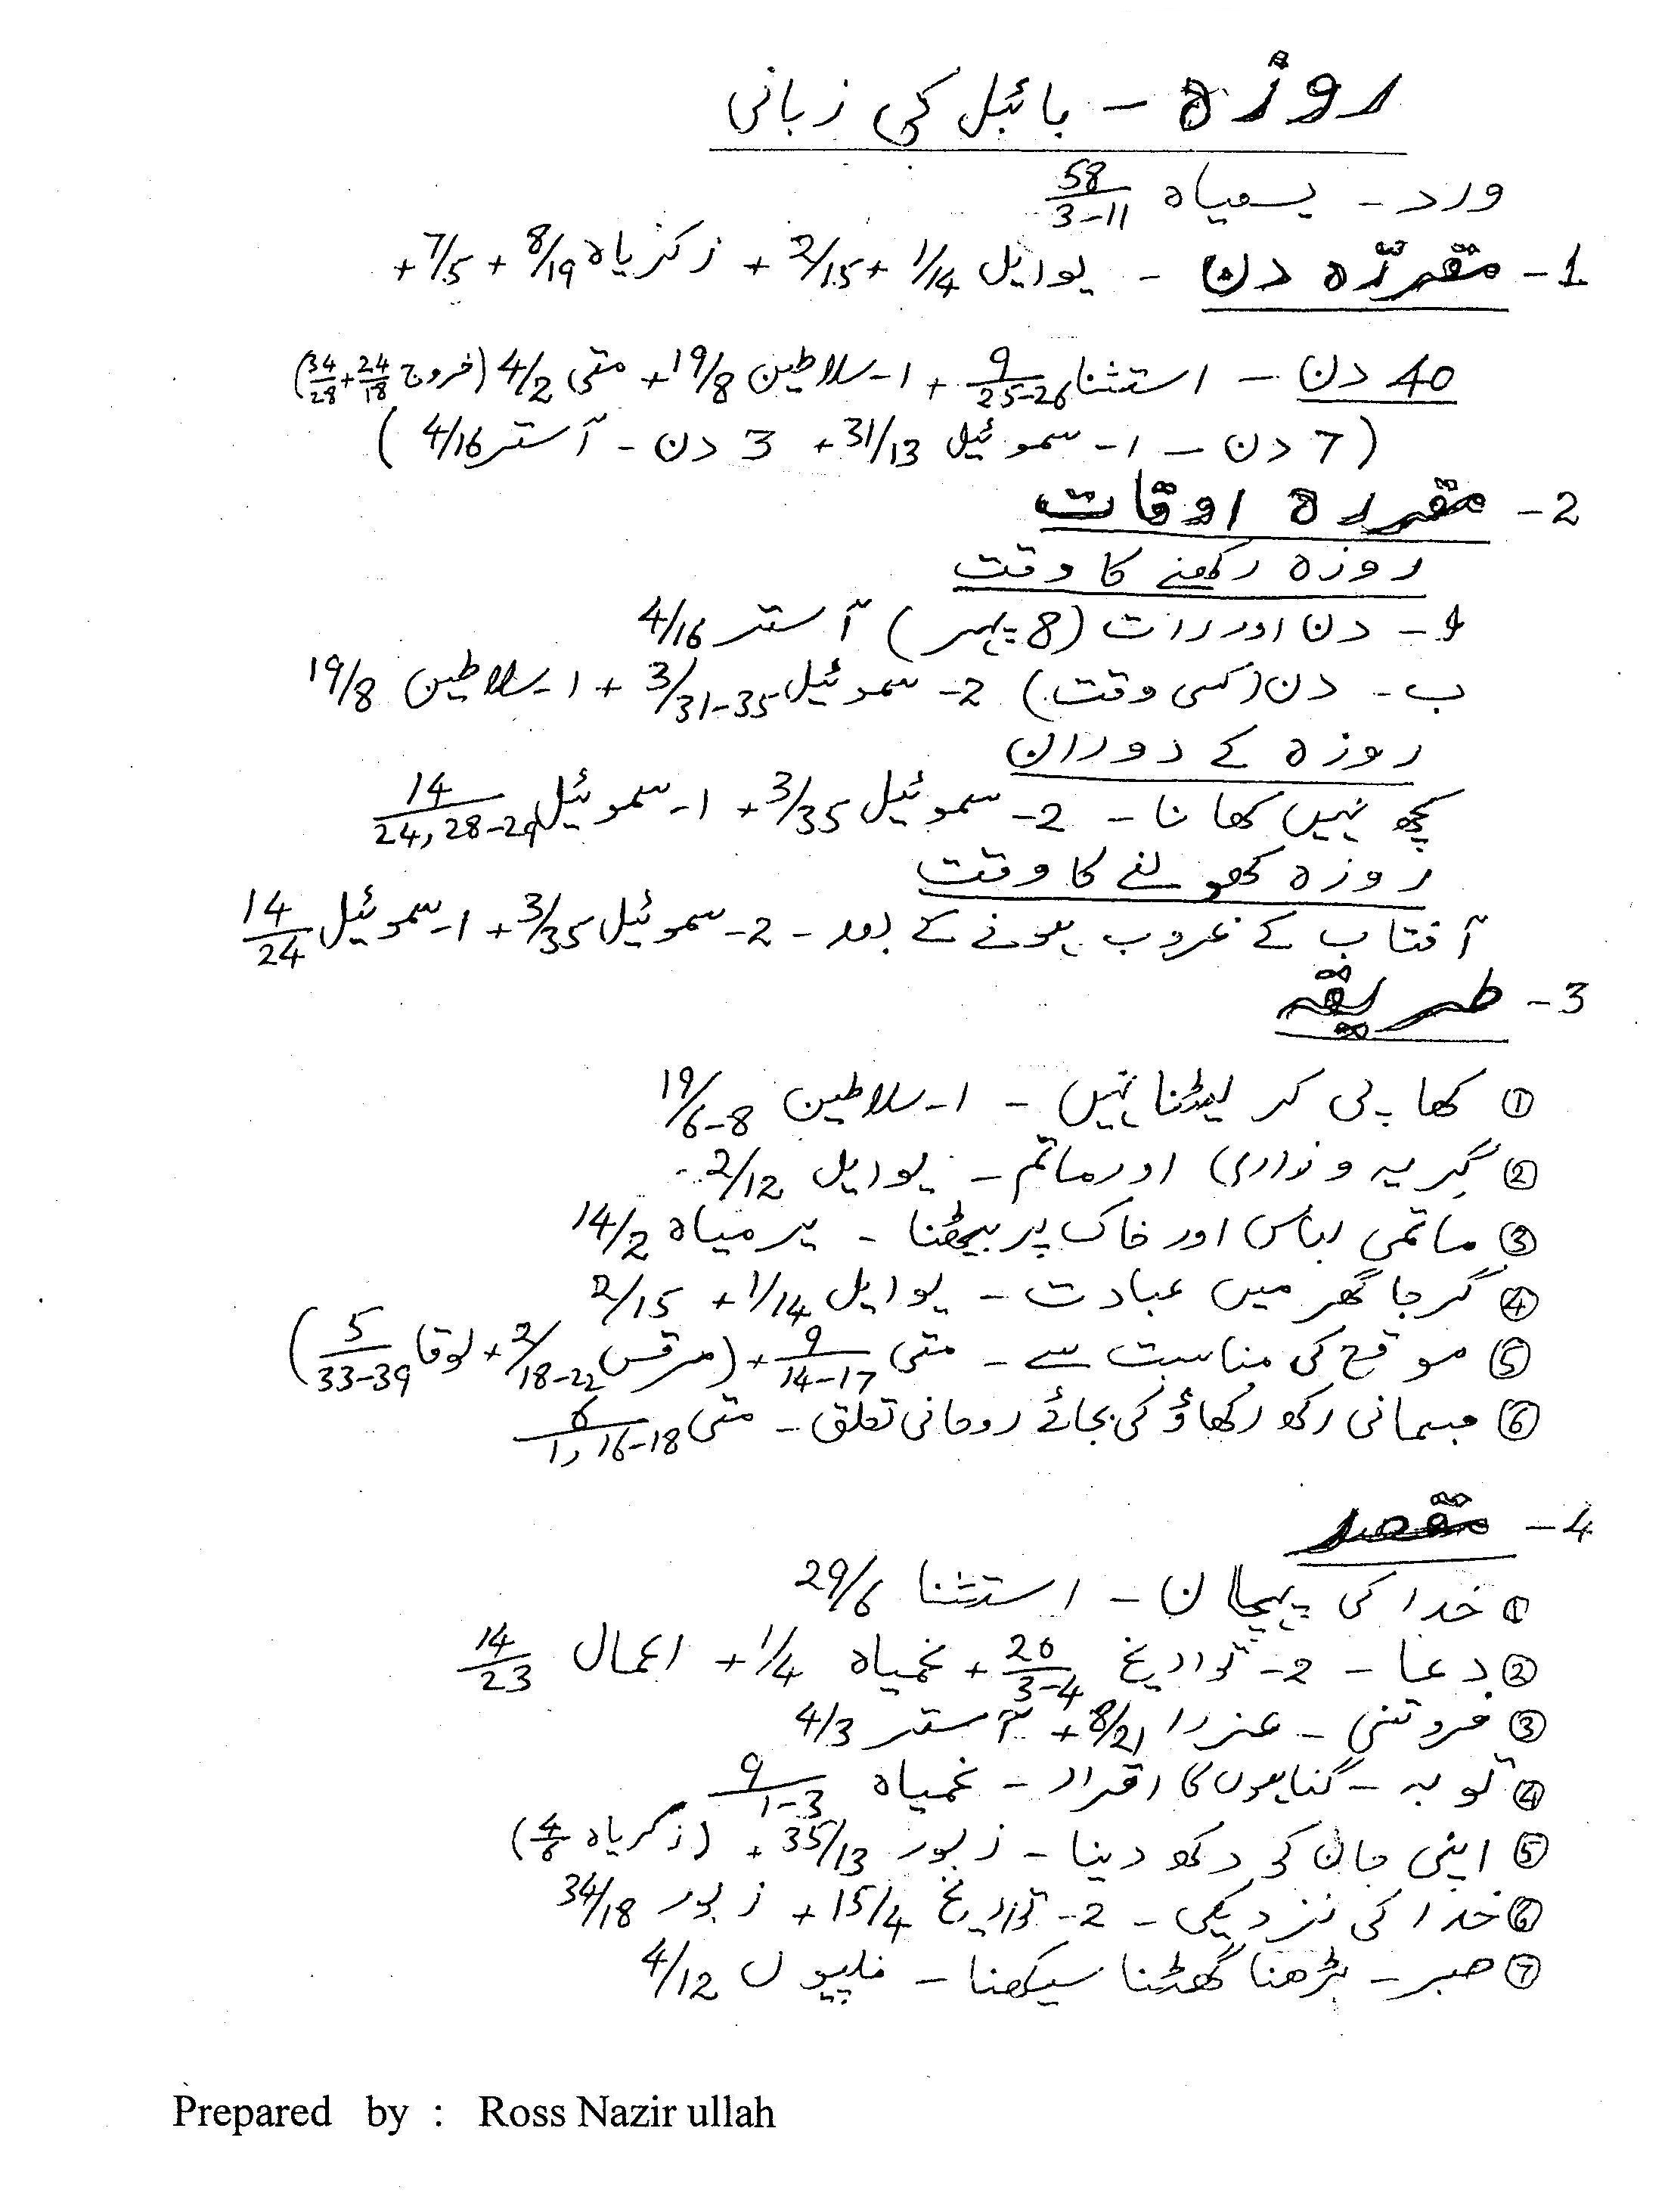 روزہ - بائبل کی زبانی
ورد - یسعیاہ 58/3-11
1- مقررّہ دن - یوایل 1/14 + 2/15 + زکریاہ 8/19 + 7/5 +
40 دن - استثنا 9/25-26 + ۱-سلاطین 19/8 + متی 4/2 (خروج 24/18 + 34/28)
(7 دن - ۱- سموئیل 31/13 + 3 دن - آستر 4/16)
2- مقررہ اوقات
روزہ رکھنے کا وقت
ا- دن اور رات (8 پہر) آستر 4/16
ب- دن (کسی وقت) 2- سموئیل 3/31-35 + ۱-سلاطین 19/8
روزہ کے دوران
کچھ نہیں کھانا - 2- سموئیل 3/35 + ۱-سموئیل 14/24, 28-29
روزہ کھولنے کا وقت
آفتاب کے غروب ہونے کے بعد - 2- سموئیل 3/35 + ۱-سموئیل 14/24
3- طریقہ
① کھا پی کر لیٹنا نہیں - ۱-سلاطین 19/6-8
② گریہ و زاری اور ماتم - یوایل 2/12
③ ماتمی لباس اور خاک پر بیٹھنا - یرمیاہ 14/2
④ گرجا گھر میں عبادت - یوایل 1/14 + 2/15
⑤ موقع کی مناسبت سے - متی 9/14-17 + (مرقس 2/18-22 + لوقا 5/33-39)
⑥ جسمانی رکھ رکھاؤ کی بجائے روحانی تعلق - متی 6/1, 16-18
4- مقصد
① خدا کی پہچان - استثنا 29/6
② دعا - 2- تواریخ 20/3-4 + نحمیاہ 1/4 + اعمال 14/23
③ فروتنی - عزرا 8/21 + آستر 4/3
④ توبہ - گناہوں کا اقرار - نحمیاہ 9/1-3
⑤ اپنی جان کو دکھ دینا - زبور 35/13 + (زکریاہ 4/6)
⑥ خدا کی نزدیکی - 2- تواریخ 15/4 + زبور 34/18
⑦ صبر - بڑھنا گھٹنا سیکھنا - فلپیوں 4/12
Prepared by : Ross Nazir ullah